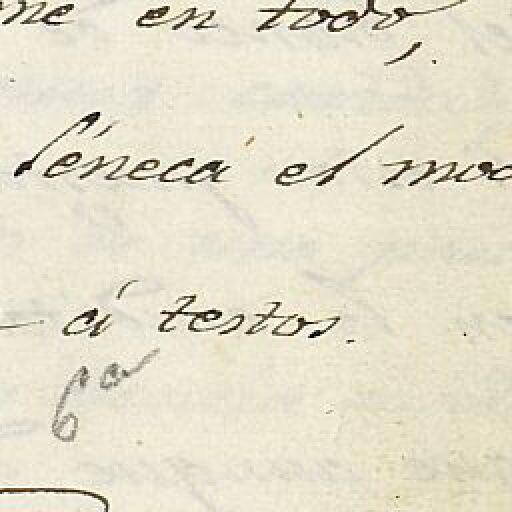 ne en todo,
Séneca el mod
á testos.
6a